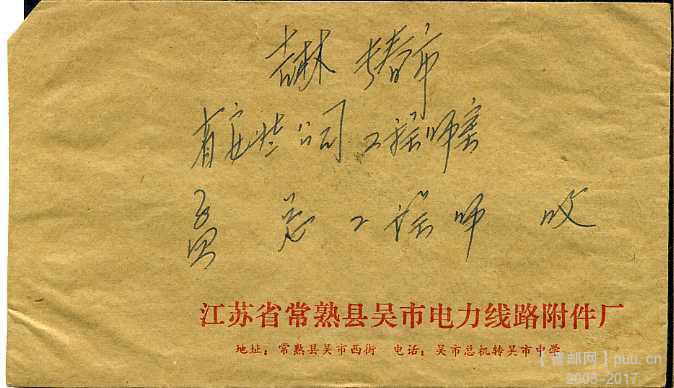 吉林 长春市
省安装公司 工程师室
总工程师 收
江苏省常熟县吴市电力线路附件厂
地址：常熟县吴市西街 电话：吴市总机转吴市中学
【普邮网】puu.cn
2005-2017